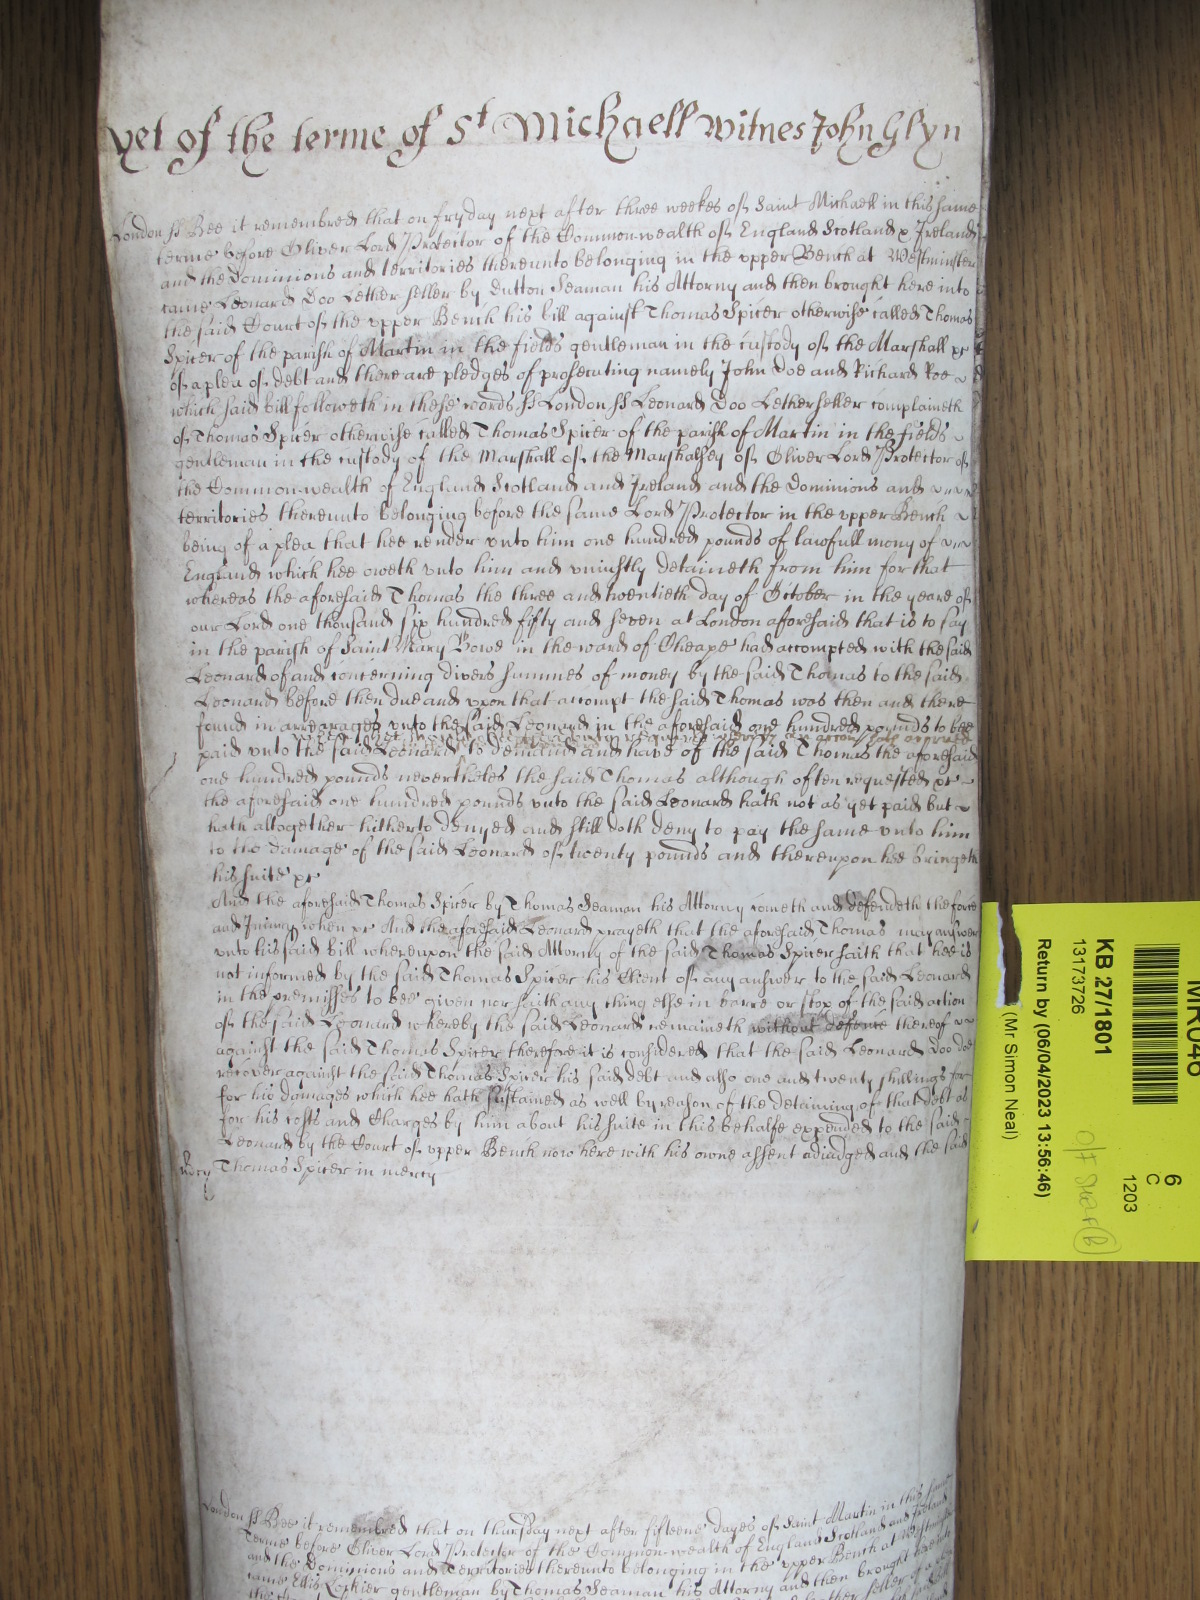 yet of the terme of St Michaell Witnes John Glyn
London ss Bee it remembred that on fryday next after three weekes of Saint Michaell in this same
terme before Oliver Lord Protector of the Common-wealth of England Scotland & Ireland
and the Dominions and territories thereunto belonging in the vpper Bench at Westminster
came Leonard Doo Lether seller by Dutton Seaman his Attorny and then brought here into
the said Court of the vpper Bench his bill against Thomas Spicer otherwise called Thomas
Spicer of the parish of Martin in the fields gentleman in the custody of the Marshall &c
of a plea of debt and there are pledges of prosecuting namely John Doe and Richard Roe
which said bill followeth in these words ss London ss Leonard Doo Letherseller complaineth
of Thomas Spicer otherwise called Thomas Spicer of the parish of Martin in the fields
gentleman in the custody of the Marshall of the Marshalsey of Oliver Lord Protector of
the Common-wealth of England Scotland and Ireland and the Dominions and
territories thereunto belonging before the same Lord Protector in the vpper Bench
being of a plea that hee render vnto him one hundred pounds of lawfull mony of
England which hee oweth vnto him and vniustly detaineth from him for that
whereas the aforesaid Thomas the three and twentieth day of October in the yeare of
our Lord one thousand six hundred fifty and seven at London aforesaid that is to say
in the parish of Saint Mary Bowe in the ward of Cheape had accompted with the said
Leonard of and concerning divers summes of money by the said Thomas to the said
Leonard before then due and vpon that accompt the said Thomas was then and there
found in arrearages vnto the said Leonard in the aforesaid one hundred pounds to bee
paid vnto the said Leonard to demand and have of the said Thomas the aforesaid
one hundred pounds nevertheles the said Thomas although often requested &c
the aforesaid one hundred pounds vnto the said Leonard hath not as yet paid but
hath altogether hitherto denyed and still doth deny to pay the same vnto him
to the damage of the said Leonard of twenty pounds and thereupon hee bringeth
his suite &c
And the aforesaid Thomas Spicer by Thomas Seaman his Attorny cometh and defendeth the force
and Iniury when &c And the aforesaid Leonard prayeth that the aforesaid Thomas may answer
vnto his said bill whereupon the said Attorny of the said Thomas Spicer saith that hee is
not informed by the said Thomas Spicer his Client of any answer to the said Leonard
in the premisses to bee given nor saith any thing else in barre or stop of the said action
of the said Leonard whereby the said Leonard remaineth without defence thereof
against the said Thomas Spicer therefore it is considered that the said Leonard Doo doe
recover against the said Thomas Spicer his said debt and also one and twenty shillings for
for his damages which hee hath sustained as well by reason of the detaining of that debt as
for his costs and Charges by him about his suite in this behalfe expended to the said
Leonard by the Court of vpper Bench now here with his owne assent adiudged and the said
Thomas Spicer in mercy
London ss Bee it remembred that on thursday next after fifteene dayes of Saint Martin in this same
Terme before Oliver Lord Protector of the Common-wealth of England Scotland and Ireland
and the Dominions and Territories thereunto belonging in the vpper Bench at Westminster
came Ellis gentleman by Thomas Seaman his Attorny and then brought here into
KB 27/1801
13173726
Return by (06/04/2023 13:56:46)
(Mr Simon Neal)
6
C
1203